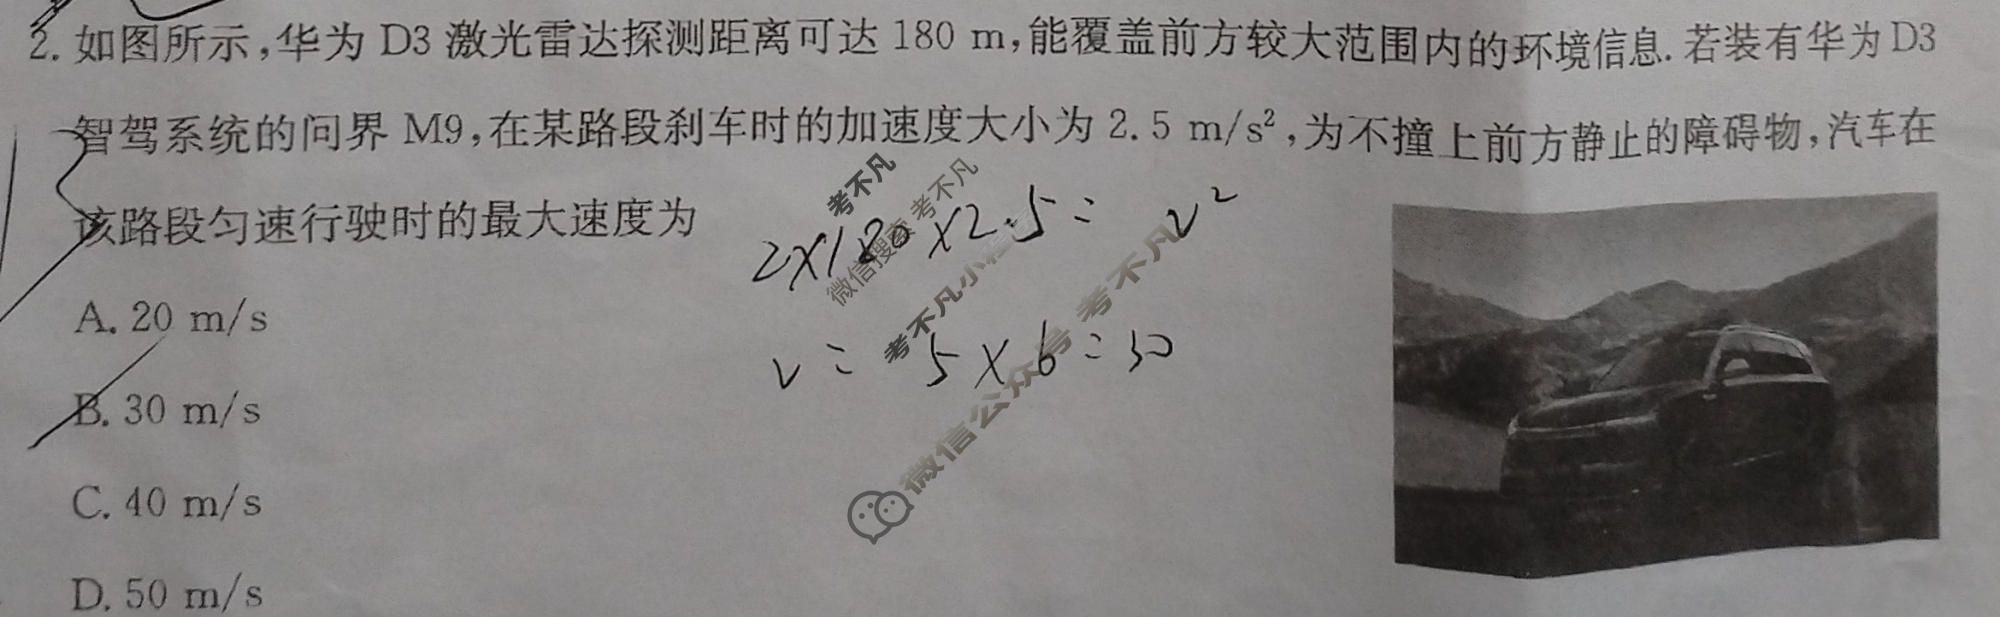 2. 如图所示,华为 D3 激光雷达探测距离可达 180 m,能覆盖前方较大范围内的环境信息. 若装有华为 D3
智驾系统的问界 M9,在某路段刹车时的加速度大小为 2.5 m/s²,为不撞上前方静止的障碍物,汽车在
该路段匀速行驶时的最大速度为
2×180×2.5= v²
v= 5×6=30
A. 20 m/s
B. 30 m/s
C. 40 m/s
D. 50 m/s
考不凡
微信搜索 考不凡
考不凡小程序
微信公众号 考不凡